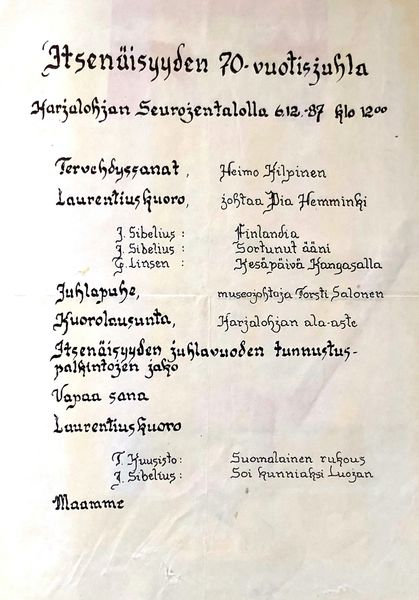 Itsenäisyyden 70-vuotisjuhla
Karjalohjan Seurojentalolla 6.12.-87 klo 12⁰⁰
Tervehdyssanat, Heimo Kilpinen
Laurentiuskuoro, johtaa Pia Hemminki
J. Sibelius: Finlandia
J. Sibelius: Sortunut ääni
G. Linsen: Kesäpäivä Kangasalla
Juhlapuhe, museojohtaja Torsti Salonen
Kuorolausunta, Karjalohjan ala-aste
Itsenäisyyden juhlavuoden tunnustus-
palkintojen jako
Vapaa sana
Laurentiuskuoro
T. Kuusisto: Suomalainen rukous
J. Sibelius: Soi kunniaksi Luojan
Maamme